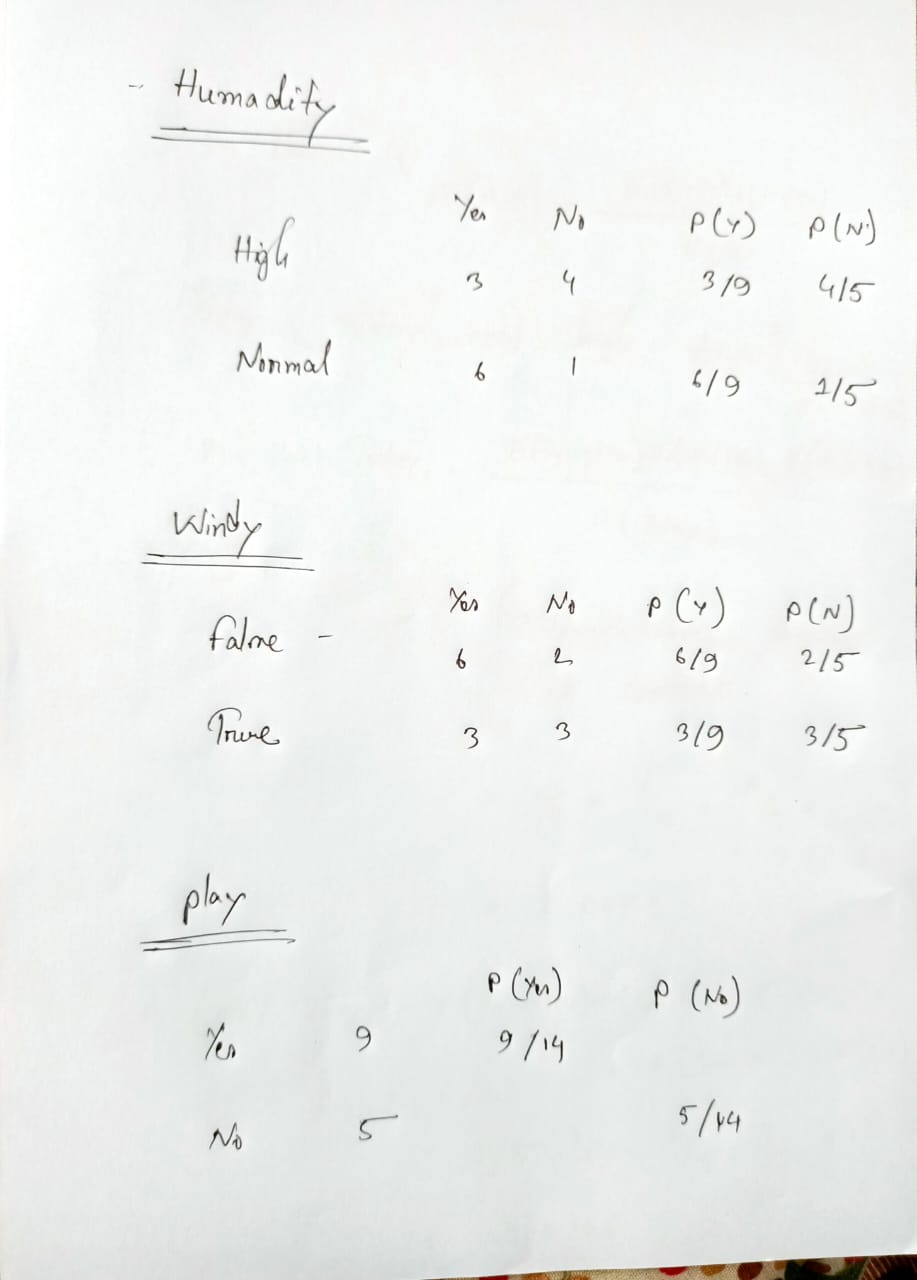 - Humadity
Yes No P(Y) P(N)
High 3 4 3/9 4/5
Normal 6 1 6/9 1/5
Windy
Yes No P(Y) P(N)
False - 6 2 6/9 2/5
True 3 3 3/9 3/5
play
P(Yes) P(No)
Yes 9 9/14
No 5 5/14